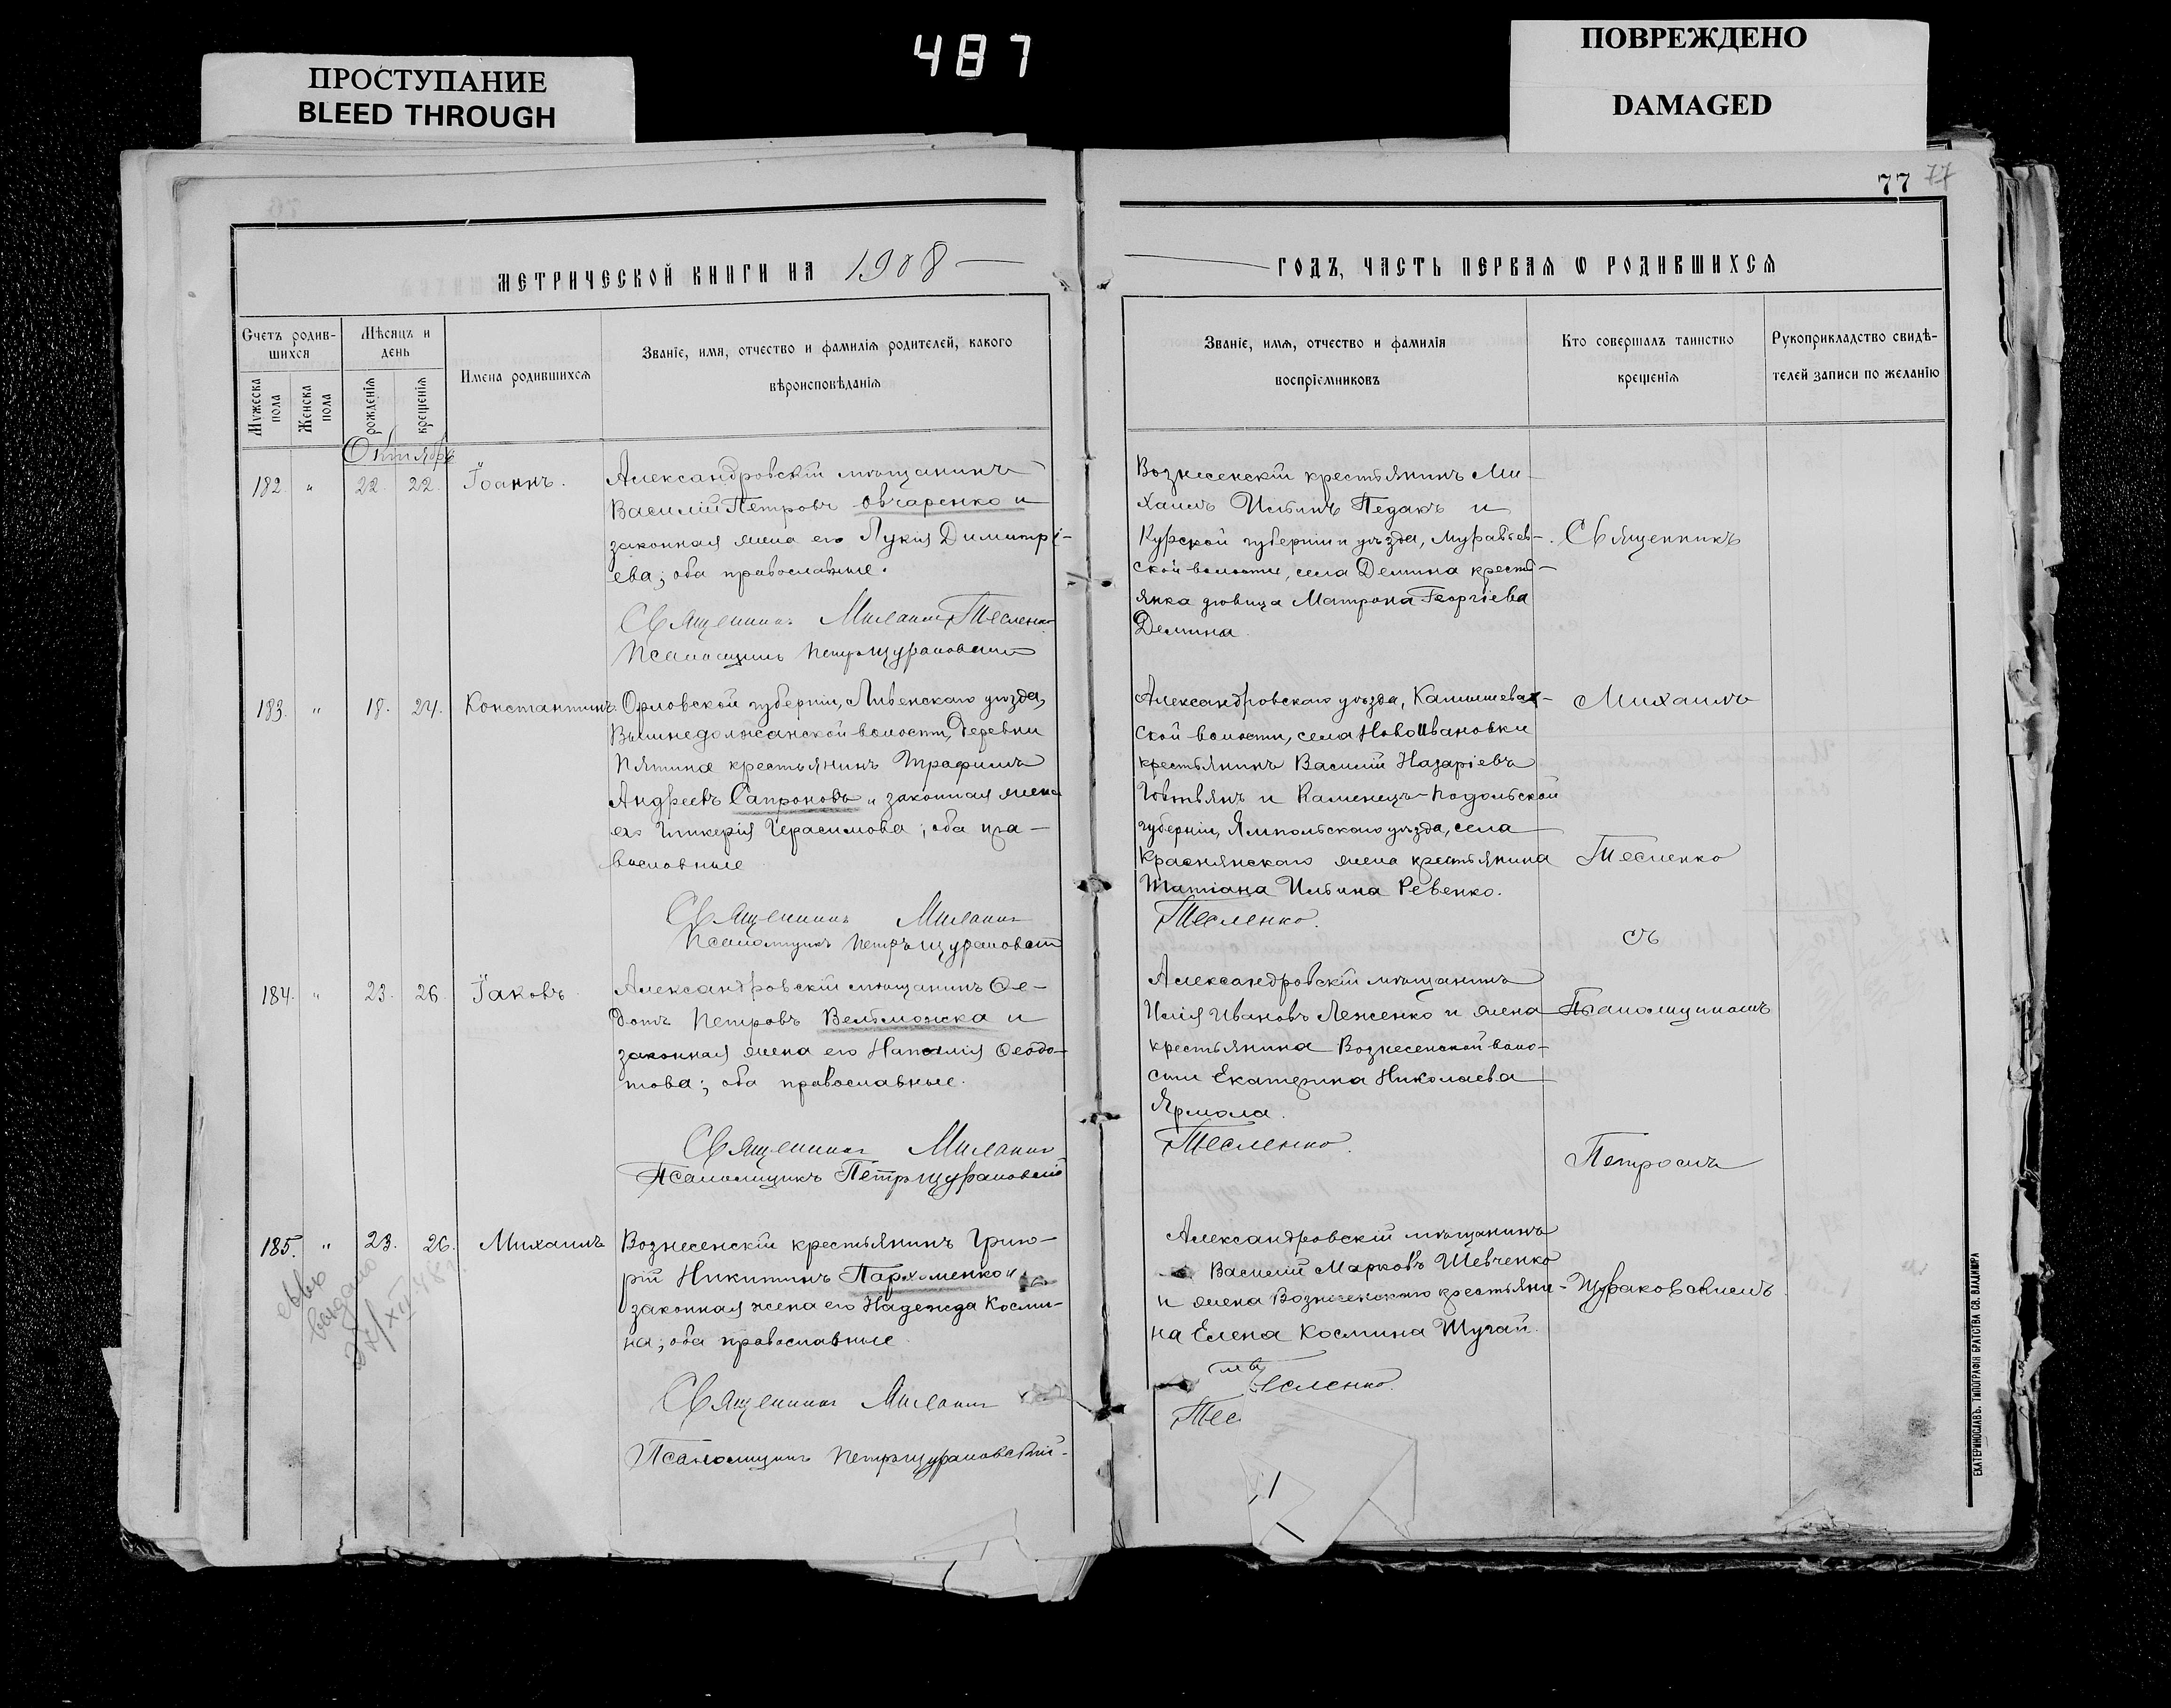 487
ПРОСТУПАНИЕ
BLEED THROUGH
ПОВРЕЖДЕНО
DAMAGED
77 77
МЕТРИЧЕСКОЙ КНИГИ НА 1908
ГОДЪ, ЧАСТЬ ПЕРВАЯ Ѡ РОДИВШИХСЯ
Счетъ родив-
шихся
Мѣсяцъ и
день
Имена родившихся
Званіе, имя, отчество и фамилія родителей, какого
вѣроисповѣданія
Мужеска
пола
Женска
пола
рожденія
крещенія
Званіе, имя, отчество и фамилія
воспріемниковъ
Кто совершалъ таинство
крещенія
Рукоприкладство свидѣ-
телей записи по желанію
Октябрь
182. " 22. 22. Іоаннъ.
Александровскій мѣщанинъ
Василій Петровъ Овчаренко и
законная жена его Лукія Димитрі-
ева; оба православные.
Священникъ Михаилъ Тесленко
Псаломщикъ Петръ Щураковскій
Вознесенскій крестьянинъ Ми-
хаилъ Ильинъ Педакъ и
Курской губерніи и уѣзда, Муравьев-
ской волости, села Демина кресть-
янка дѣвица Матрона Георгіева
Демина.
183. " 18. 24. Константинъ.
Орловской губерніи, Ливенскаго уѣзда,
Вышнедолжанской волости, деревни
Пятина крестьянинъ Трафимъ
Андреевъ Сапроновъ и законная жена
его Гликерія Герасимова; оба пра-
вославные
Священникъ Михаилъ
Псаломщикъ Петръ Щураковскій
Александровскаго уѣзда, Камышевах-
ской волости, села Ново Ивановки
крестьянинъ Василій Назаріевъ
Говтвянъ и Каменецъ-Подольской
губерніи, Ямпольскаго уѣзда, села
Краснянскаго жена крестьянина
Татіана Ильина Ревенко.
Тесленко.
184. " 23. 26. Іаковъ
Александровскій мѣщанинъ Ѳе-
дотъ Петровъ Вельможка и
законная жена его Наталія Ѳеодо-
това; оба православные.
Священникъ Михаилъ
Псаломщикъ Петръ Щураковскій
Александровскій мѣщанинъ
Илія Ивановъ Леженко и жена
крестьянина Вознесенской воло-
сти Екатерина Николаева
Ярмола.
Тесленко.
185. " 23. 26. Михаилъ
Вознесенскій крестьянинъ Григо-
рій Никитинъ Пархоменко и
законная жена его Надежда Косми-
на; оба православные.
Священникъ Михаилъ
Псаломщикъ Петръ Щураковскій
выдано
Александровскій мѣщанинъ
Василій Марковъ Шевченко
и жена Вознесенскаго крестьяни-
на Елена Космина Шугай.
Тесленко.
Тес
Священникъ
Михаилъ
Тесленко
съ
Псаломщикомъ
Петромъ
Щураковскимъ
ЕКАТЕРИНОСЛАВЪ. ТИПОГРАФІЯ БРАТСТВА СВ. ВЛАДИМІРА